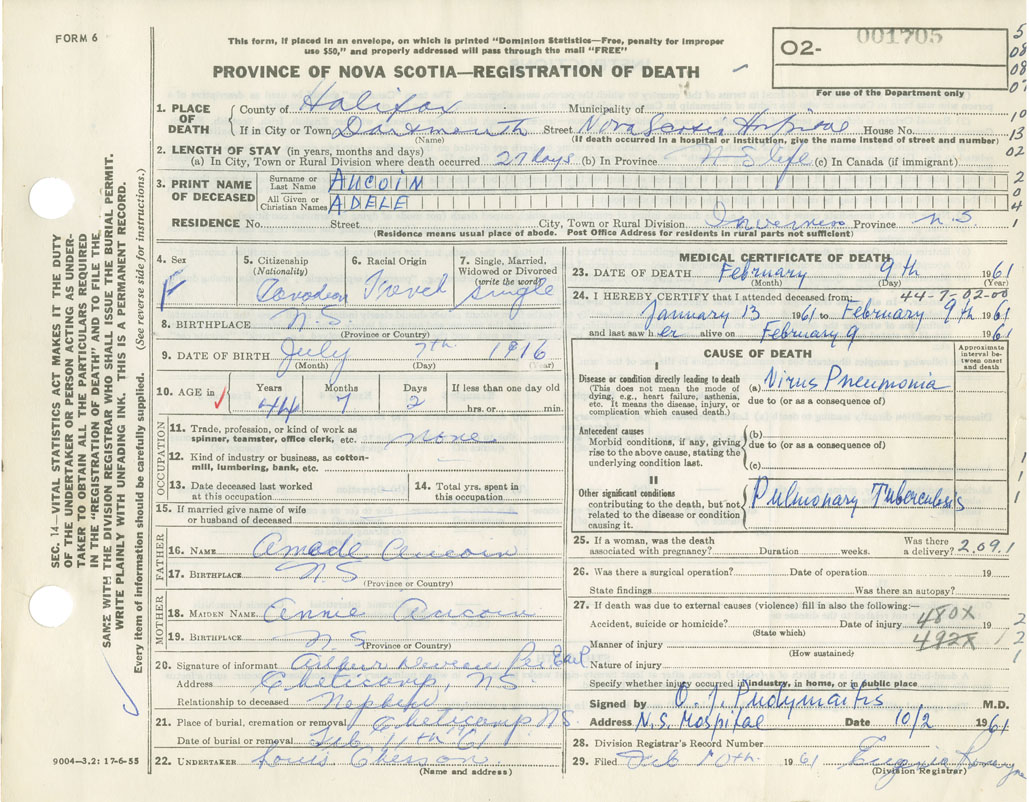 FORM 6
This form, if placed in an envelope, on which is printed "Dominion Statistics—Free, penalty for improper
use $50," and properly addressed will pass through the mail "FREE"
PROVINCE OF NOVA SCOTIA—REGISTRATION OF DEATH
02- 001705
For use of the Department only
1. PLACE OF DEATH
County of Halifax Municipality of
If in City or Town Dartmouth Street Nova Scotia Hospital House No.
(Name) (If death occurred in a hospital or institution, give the name instead of street and number)
2. LENGTH OF STAY (in years, months and days)
(a) In City, Town or Rural Division where death occurred 27 days (b) In Province NS life (c) In Canada (if immigrant)
3. PRINT NAME OF DECEASED
Surname or Last Name AUCOIN
All Given or Christian Names ADELE
RESIDENCE No. Street City, Town or Rural Division Inverness Province N.S
(Residence means usual place of abode. Post Office Address for residents in rural parts not sufficient)
4. Sex F
5. Citizenship (Nationality) Canadian
6. Racial Origin French
7. Single, Married, Widowed or Divorced (write the word) Single
8. BIRTHPLACE N.S.
(Province or Country)
9. DATE OF BIRTH July 7th 1916
(Month) (Day) (Year)
10. AGE in Years Months Days If less than one day old
44 7 2 hrs. or min.
OCCUPATION
11. Trade, profession, or kind of work as
spinner, teamster, office clerk, etc. none
12. Kind of industry or business, as cotton-
mill, lumbering, bank, etc.
13. Date deceased last worked
at this occupation
14. Total yrs. spent in
this occupation
15. If married give name of wife
or husband of deceased
FATHER
16. NAME Amade Aucoin
17. BIRTHPLACE N.S.
(Province or Country)
MOTHER
18. MAIDEN NAME Annie Aucoin
19. BIRTHPLACE N.S
(Province or Country)
20. Signature of informant Arthur
Address Cheticamp, N.S.
Relationship to deceased Nephew
21. Place of burial, cremation or removal Cheticamp N.S.
Date of burial or removal Feb 11th 61
22. UNDERTAKER Louis
(Name and address)
MEDICAL CERTIFICATE OF DEATH
23. DATE OF DEATH February 9th 1961
(Month) (Day) (Year)
44-7-02-00
24. I HEREBY CERTIFY that I attended deceased from:
January 13 1961 to February 9th 1961
and last saw her alive on February 9 1961
CAUSE OF DEATH
Approximate interval between onset and death
I
Disease or condition directly leading to death
(This does not mean the mode of
dying, e.g., heart failure, asthenia,
etc. It means the disease, injury, or
complication which caused death.)
(a) Virus Pneumonia
due to (or as a consequence of)
Antecedent causes
Morbid conditions, if any, giving
rise to the above cause, stating the
underlying condition last.
(b)
due to (or as a consequence of)
(c)
II
Other significant conditions
contributing to the death, but not
related to the disease or condition
causing it.
Pulmonary Tuberculosis
25. If a woman, was the death
associated with pregnancy? Duration weeks. Was there a delivery? 2.09.1
26. Was there a surgical operation? Date of operation 19
State findings Was there an autopsy?
27. If death was due to external causes (violence) fill in also the following:—
Accident, suicide or homicide? Date of injury 19
(State which)
480X
492X
Manner of injury
(How sustained)
Nature of injury
Specify whether injury occurred in industry, in home, or in public place
Signed by O. J. Pudymaitis M.D.
Address N.S. Hospital Date 10/2 1961
28. Division Registrar's Record Number
29. Filed Feb 10th 1961 Eugenia
(Division Registrar)
SEC. 14—VITAL STATISTICS ACT MAKES IT THE DUTY
OF THE UNDERTAKER OR PERSON ACTING AS UNDER-
TAKER TO OBTAIN ALL THE PARTICULARS REQUIRED
IN THE "REGISTRATION OF DEATH" AND TO FILE THE
SAME WITH THE DIVISION REGISTRAR WHO SHALL ISSUE THE BURIAL PERMIT.
WRITE PLAINLY WITH UNFADING INK. THIS IS A PERMANENT RECORD.
Every item of information should be carefully supplied. (See reverse side for instructions.)
9004-3.2: 17-6-55